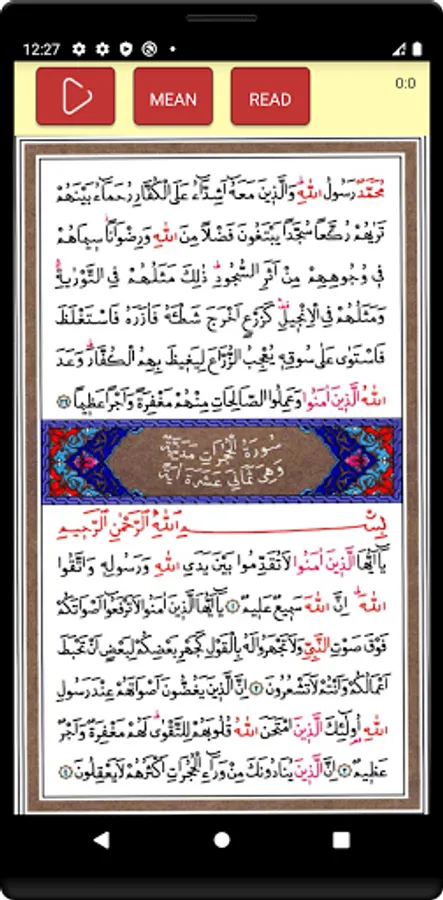 12:27
MEAN READ 0:0
مُحَمَّدٌ رَسُولُ اللّٰهِۜ وَالَّذ۪ينَ مَعَهُٓ اَشِدَّٓاءُ عَلَى الْكُفَّارِ رُحَمَٓاءُ بَيْنَهُمْ
تَرٰيهُمْ رُكَّعاً سُجَّداً يَبْتَغُونَ فَضْلاً مِنَ اللّٰهِ وَرِضْوَاناًۘ س۪يمَاهُمْ
ف۪ي وُجُوهِهِمْ مِنْ اَثَرِ السُّجُودِۜ ذٰلِكَ مَثَلُهُمْ فِي التَّوْرٰيةِۚ
وَمَثَلُهُمْ فِي الْاِنْج۪يلِ۠ كَزَرْعٍ اَخْرَجَ شَطْـَٔهُ فَاٰزَرَهُ فَاسْتَغْلَظَ
فَاسْتَوٰى عَلٰى سُوقِه۪ يُعْجِبُ الزُّرَّاعَ لِيَغ۪يظَ بِهِمُ الْكُفَّارَۜ وَعَدَ
اللّٰهُ الَّذ۪ينَ اٰمَنُوا وَعَمِلُوا الصَّالِحَاتِ مِنْهُمْ مَغْفِرَةً وَاَجْراً عَظ۪يماً ﴿٢٩﴾
سُورَةُ الْحُجُرَاتِ مَدَنِيَّةٌ
وَهِيَ ثَمَانِيَ عَشْرَةَ اٰيَةً
بِسْمِ اللّٰهِ الرَّحْمٰنِ الرَّح۪يمِ
يَٓا اَيُّهَا الَّذ۪ينَ اٰمَنُوا لَا تُقَدِّمُوا بَيْنَ يَدَيِ اللّٰهِ وَرَسُولِه۪ وَاتَّقُوا
اللّٰهَۜ اِنَّ اللّٰهَ سَم۪يعٌ عَل۪يمٌ ﴿١﴾ يَٓا اَيُّهَا الَّذ۪ينَ اٰمَنُوا لَا تَرْفَعُٓوا اَصْوَاتَكُمْ
فَوْقَ صَوْتِ النَّبِيِّ وَلَا تَجْهَرُوا لَهُ بِالْقَوْلِ كَجَهْرِ بَعْضِكُمْ لِبَعْضٍ اَنْ تَحْبَطَ
اَعْمَالُكُمْ وَاَنْتُمْ لَا تَشْعُرُونَ ﴿٢﴾ اِنَّ الَّذ۪ينَ يَغُضُّونَ اَصْوَاتَهُمْ عِنْدَ رَسُولِ
اللّٰهِ اُو۬لٰٓئِكَ الَّذ۪ينَ امْتَحَنَ اللّٰهُ قُلُوبَهُمْ لِلتَّقْوٰىۜ لَهُمْ مَغْفِرَةٌ وَاَجْرٌ
عَظ۪يمٌ ﴿٣﴾ اِنَّ الَّذ۪ينَ يُنَادُونَكَ مِنْ وَرَٓاءِ الْحُجُرَاتِ اَكْثَرُهُمْ لَا يَعْقِلُونَ ﴿٤﴾